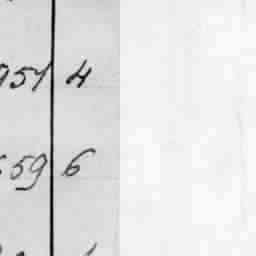 951 4
59 6